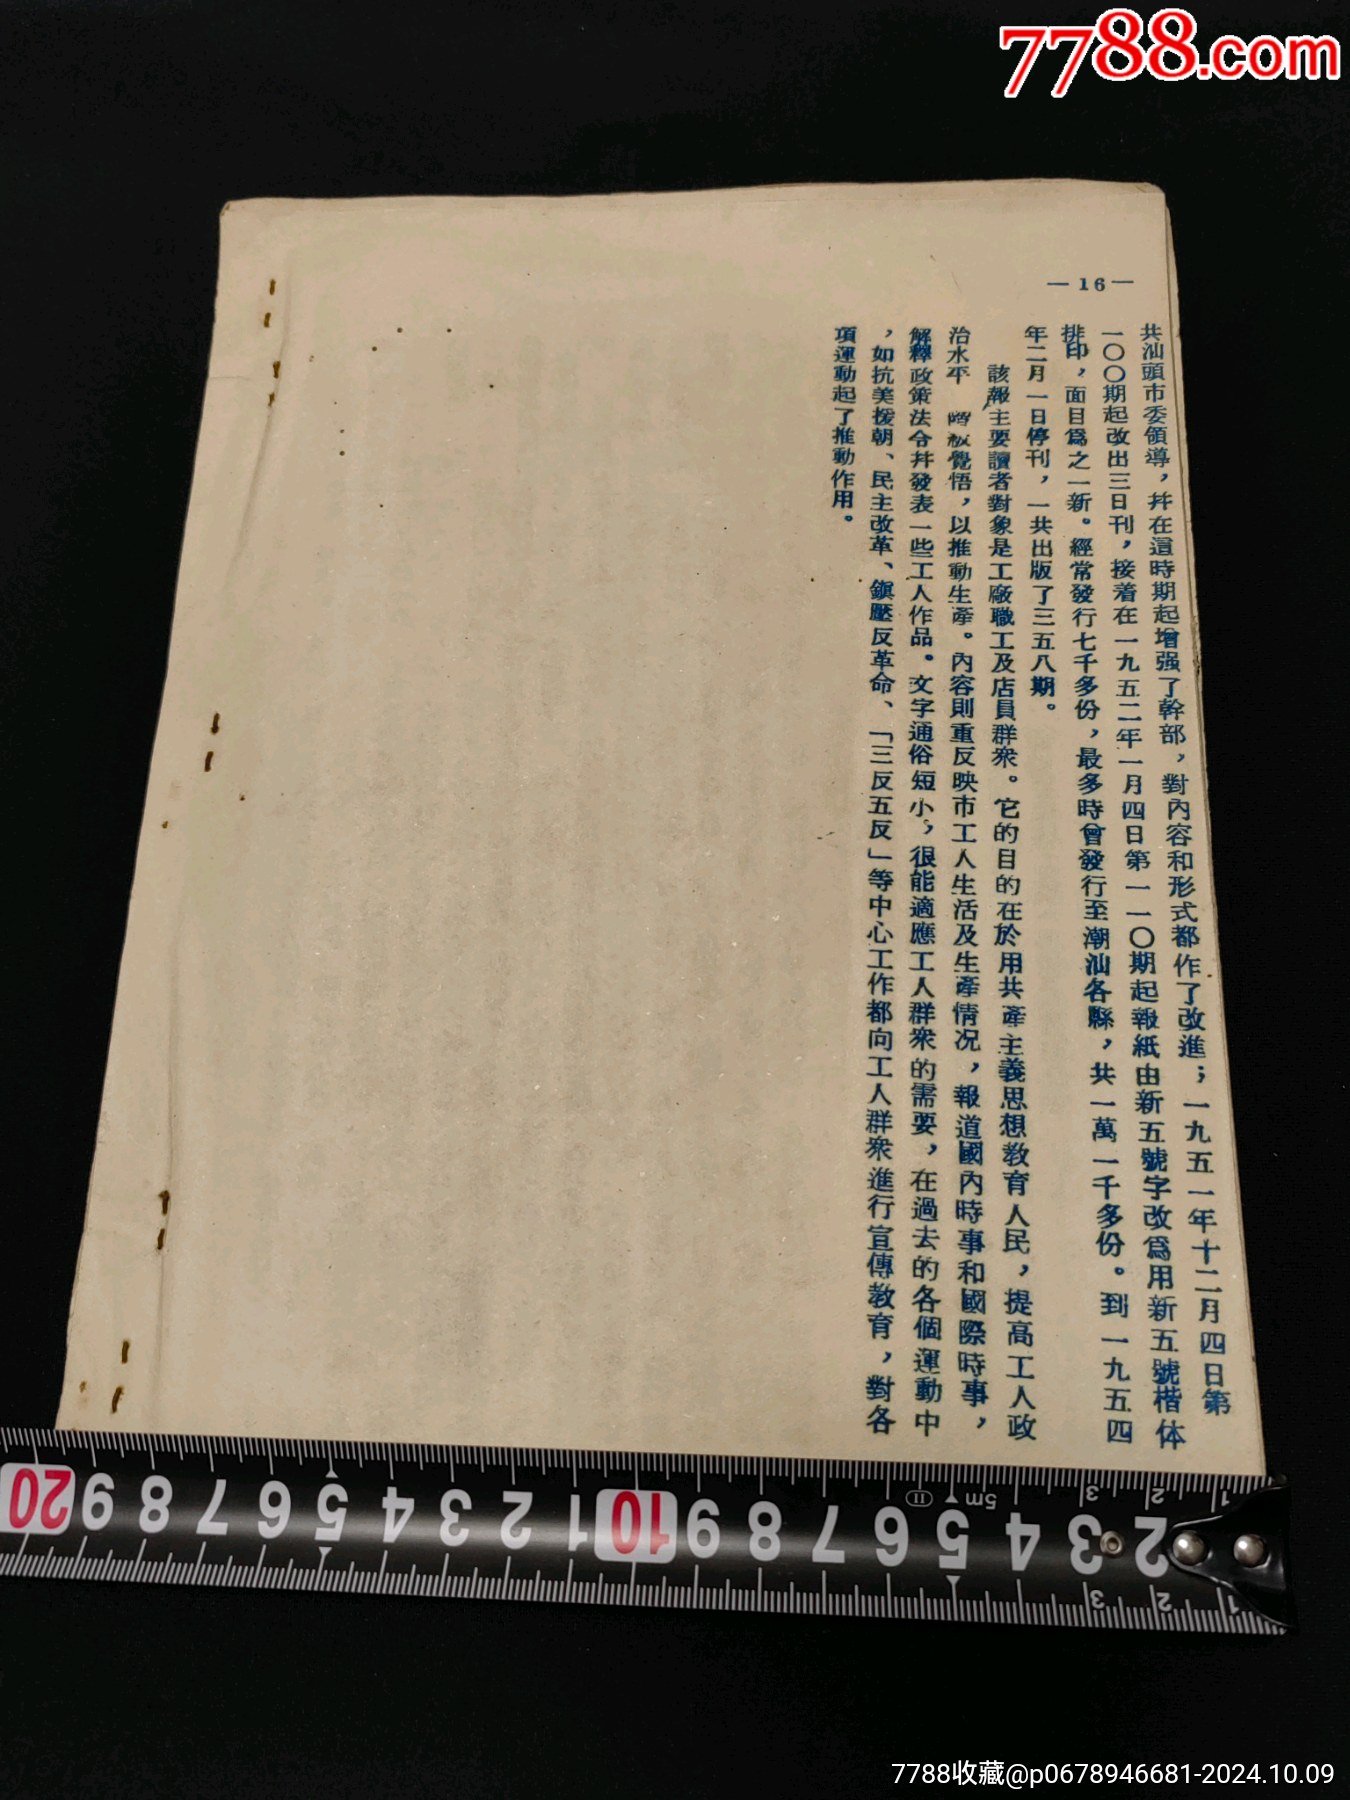 7788.com
—16—
共汕頭市委領導，幷在這時期起增强了幹部，對內容和形式都作了改進；一九五一年十二月四日第
一〇〇期起改出三日刊，接着在一九五二年一月四日第一一〇期起報紙由新五號字改爲用新五號楷体
排印，面目爲之一新。經常發行七千多份，最多時曾發行至潮汕各縣，共一萬一千多份。到一九五四
年二月一日停刊，一共出版了三五八期。
該報主要讀者對象是工廠職工及店員群衆。它的目的在於用共產主義思想教育人民，提高工人政
治水平 覺悟，以推動生產。內容則重反映市工人生活及生產情况，報道國內時事和國際時事，
解釋政策法令幷發表一些工人作品。文字通俗短小，很能適應工人群衆的需要，在過去的各個運動中
，如抗美援朝、民主改革、鎭壓反革命、「三反五反」等中心工作都向工人群衆進行宣傳教育，對各
項運動起了推動作用。
20 9 8 7 6 5 4 3 2 1 10 9 8 7 6 5 4 3 2
5m
II
3 2 1
3 2 1
7788收藏@p0678946681-2024.10.09